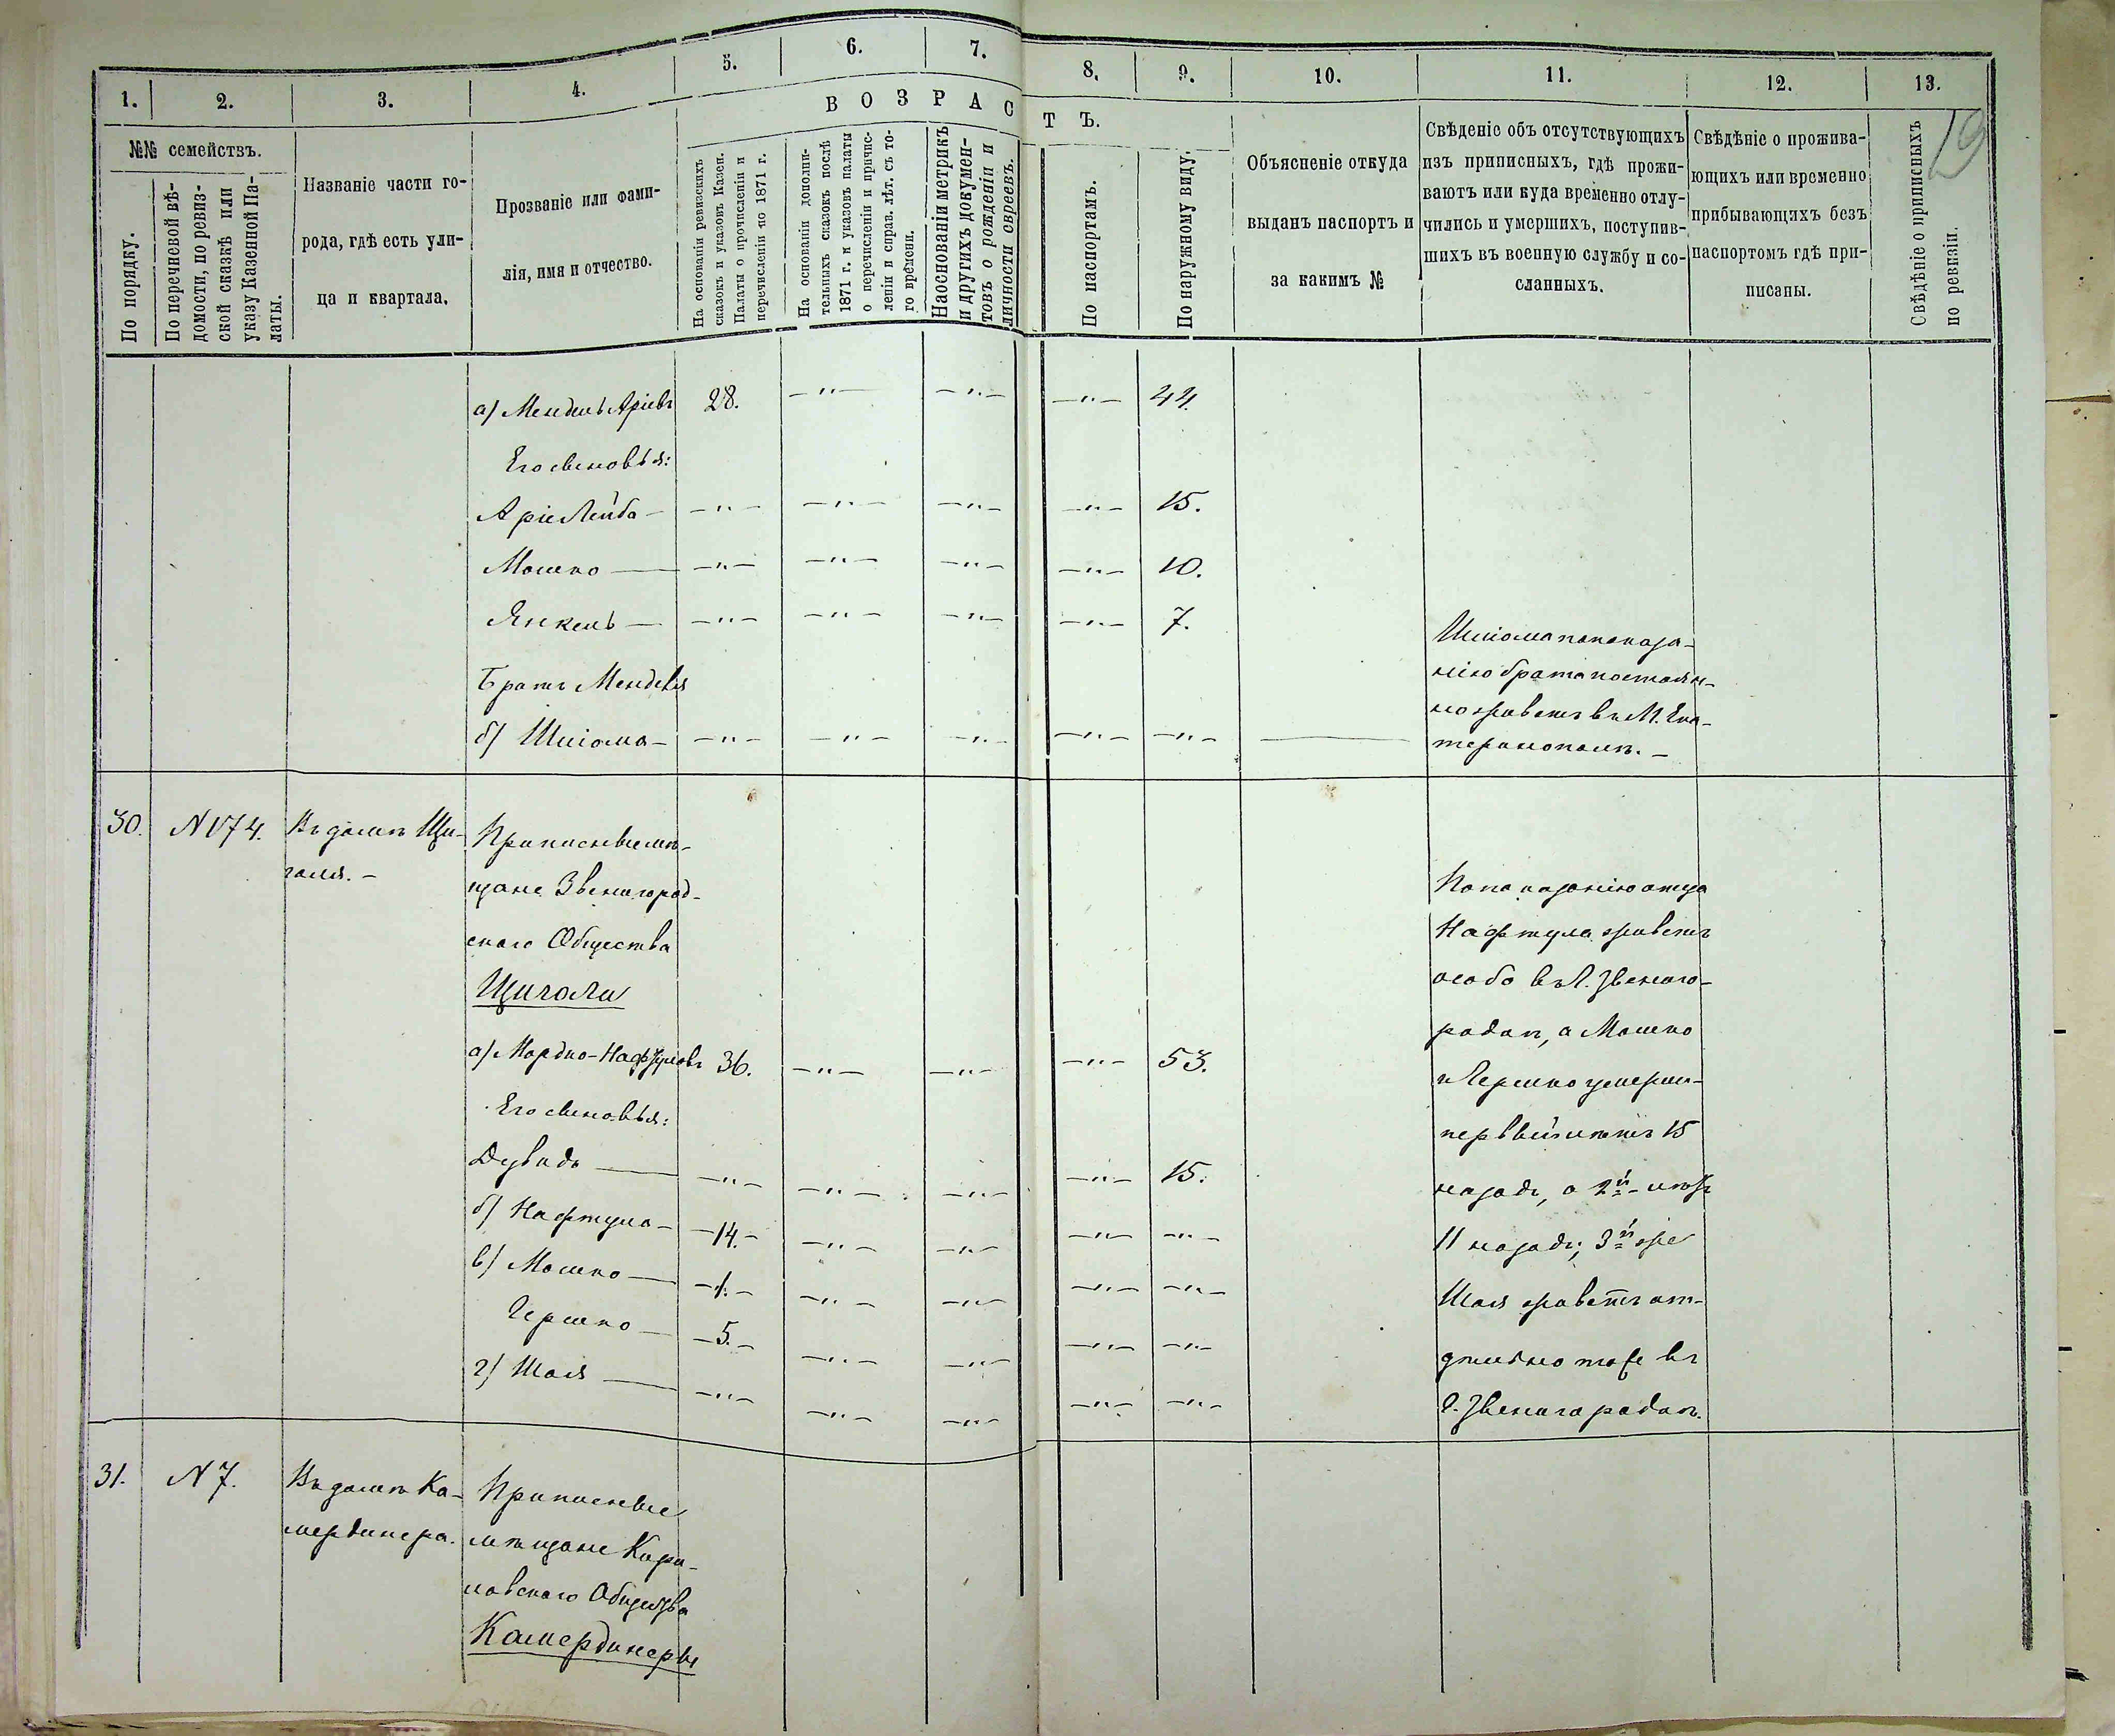 1. 2. 3. 4. 5. 6. 7. 8. 9. 10. 11. 12. 13.
19
ВОЗРАСТЪ.
№№ семействъ.
По порядку.
По перечневой вѣ-
домости, по ревиз-
ской сказкѣ или
указу Казенной Па-
латы.
Названіе части го-
рода, гдѣ есть ули-
ца и квартала.
Прозваніе или фами-
лія, имя и отчество.
На основаніи ревизскихъ
сказокъ и указовъ Казен.
Палаты о прочисленіи и
перечисленіи по 1871 г.
На основаніи дополни-
тельныхъ сказокъ послѣ
1871 г. и указовъ палаты
о перечисленіи и причис-
леніи и справ. лѣт. съ то-
го времени.
На основаніи метрикъ
и другихъ докумен-
товъ о рожденіи и
личности евреевъ.
По паспортамъ.
По наружному виду.
Объясненіе откуда
выданъ паспортъ и
за какимъ №
Свѣденіе объ отсутствующихъ
изъ приписныхъ, гдѣ прожи-
ваютъ или куда временно отлу-
чились и умершихъ, поступив-
шихъ въ военную службу и со-
сланныхъ.
Свѣдѣніе о прожива-
ющихъ или временно
прибывающихъ безъ
паспортомъ гдѣ при-
писаны.
Свѣдѣніе о приписныхъ
по ревизіи.
а) Мендель Аріевъ 28. —"— —"— —"— 44.
Его сыновья:
Аріе Лейба — —"— —"— —"— —"— 15.
Мошко — —"— —"— —"— —"— 10.
Янкель — —"— —"— —"— —"— 7.
Братъ Менделя
б) Шліома — —"— —"— —"— —"— —"— —
Шліома по показа-
нію брата постоян-
но живетъ въ М. Ека-
теринополѣ. —
30. N 174. Въ домѣ Щи-
голя. —
Приписные мѣ-
щане Звенигород-
скаго Общества
Щиголи
а) Мордко-Нафтуловъ 36. —"— —"— —"— 53.
Его сыновья:
Дувидъ — —"— —"— —"— —"— 15.
б) Нафтула — —14.— —"— —"— —"— —"—
в) Мошко — —1.— —"— —"— —"— —"—
Гершко — —5.— —"— —"— —"— —"—
г) Шая — —"— —"— —"— —"— —"—
По показанію отца
Нафтула живетъ
особо въ Г. Звениго-
родкѣ, а Мошко
и Гершко умерли
первый лѣтъ 15
назадъ, а 2й лѣтъ
11 назадъ; 3й же
Шая живетъ от-
дѣльно тоже въ
Г. Звенигородкѣ.
31. N 7. Въ домѣ Ка-
мердинера.
Приписные
мѣщане Кори-
ловскаго Общества
Камердинеры